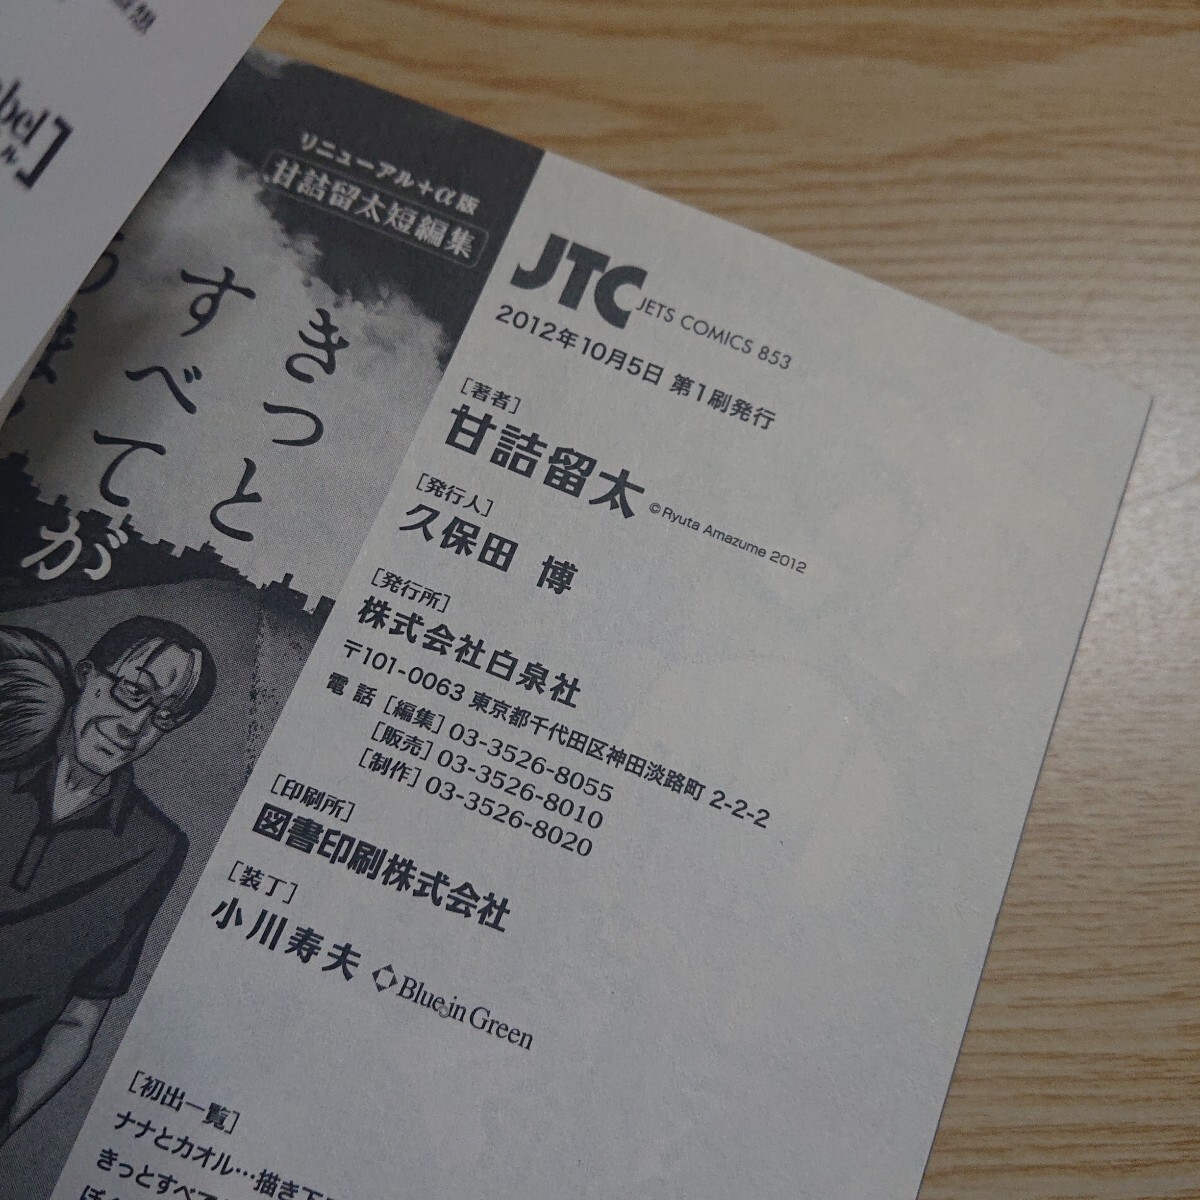 想
bel
ル】
リニューアル+α版
甘詰留太短編集
きっと
すべてが
うま
JTC JETS COMICS 853
2012年10月5日 第1刷発行
[著者]
甘詰留太 ©Ryuta Amazume 2012
[発行人]
久保田 博
[発行所]
株式会社白泉社
〒101-0063 東京都千代田区神田淡路町 2-2-2
電話 [編集] 03-3526-8055
[販売] 03-3526-8010
[制作] 03-3526-8020
[印刷所]
図書印刷株式会社
[装丁]
小川寿夫 Blue in Green
[初出一覧]
ナナとカオル…描き下
きっとすべて
ぼく